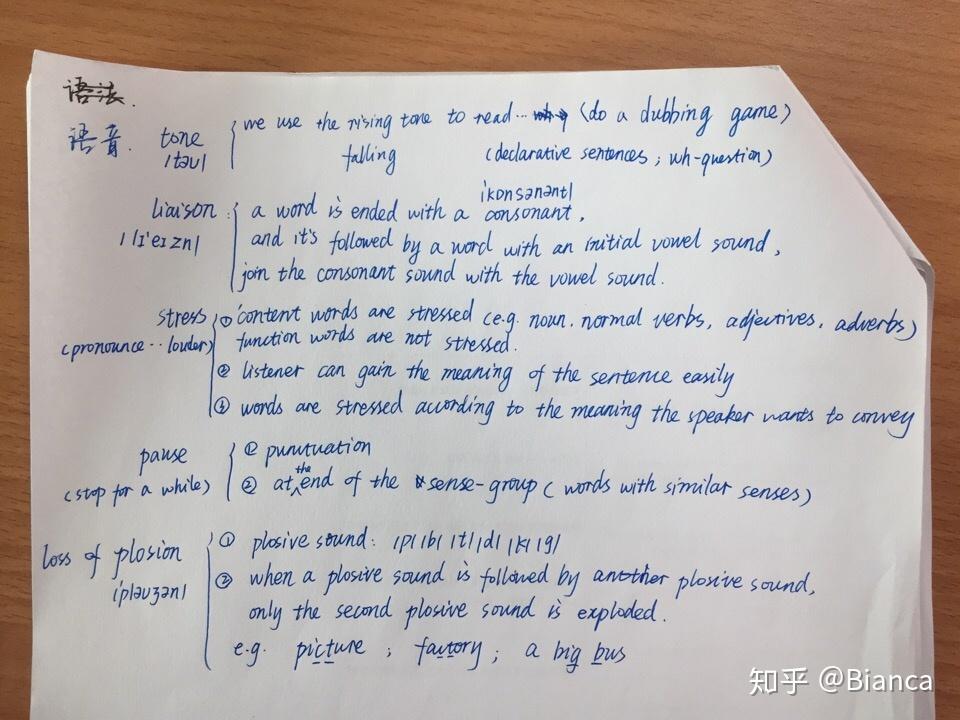 语法.
语音. tone we use the rising tone to read... (do a dubbing game)
/təu/ falling (declarative sentences; wh-question)
liaison: a word is ended with a consonant, /ˈkɒnsənənt/
/lɪˈeɪzn/ and it's followed by a word with an initial vowel sound,
join the consonant sound with the vowel sound.
stress ① content words are stressed (e.g. noun. normal verbs, adjectives, adverbs)
(pronounce.. louder) function words are not stressed.
② listener can gain the meaning of the sentence easily
③ words are stressed according to the meaning the speaker wants to convey
pause ① punutuation
(stop for a while) ② at the end of the sense-group (words with similar senses)
loss of plosion ① plosive sound: /p/ /b/ /t/ /d/ /k/ /g/
/ˈpləuʒən/ ② when a plosive sound is followed by another plosive sound,
only the second plosive sound is exploded.
e.g. picture; factory; a big bus
知乎 @Bianca